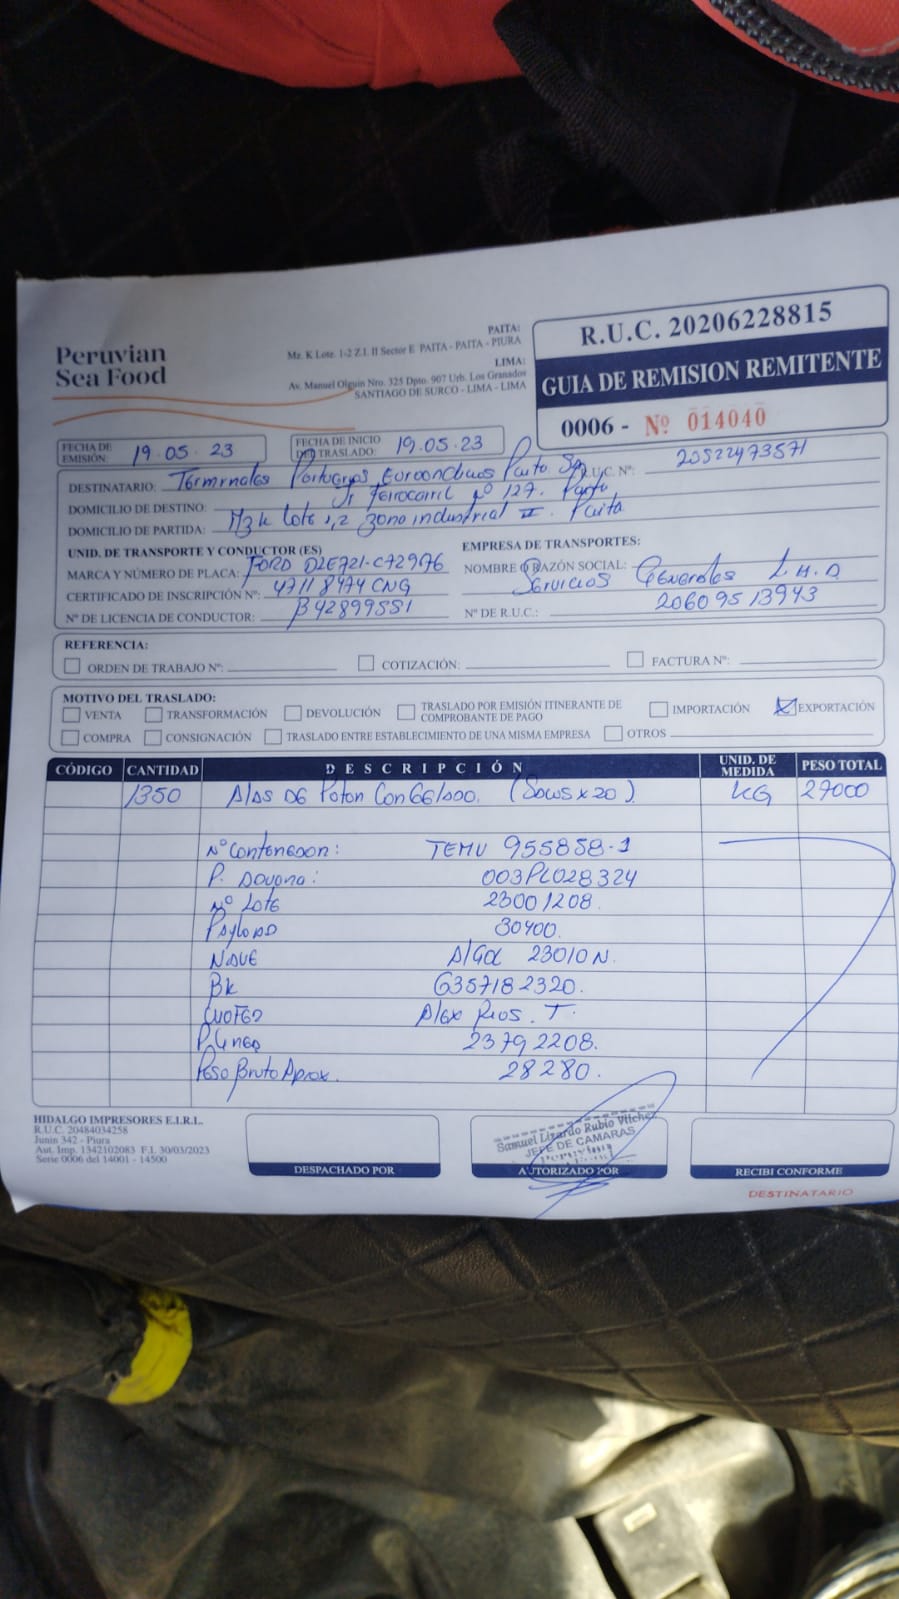 Peruvian
Sea Food
PAITA:
Mz. K Lote. 1-2 Z.I. II Sector E PAITA - PAITA - PIURA
LIMA:
Av. Manuel Olguin Nro. 325 Dpto. 907 Urb. Los Granados
SANTIAGO DE SURCO - LIMA - LIMA
R.U.C. 20206228815
GUIA DE REMISION REMITENTE
0006 - Nº 014040
FECHA DE EMISIÓN: 19.05.23
FECHA DE INICIO DEL TRASLADO: 19.05.23
DESTINATARIO: Terminales Portuarios Euroandinos Paita Sa R.U.C. Nº: 20522473571
DOMICILIO DE DESTINO: Jr Ferrocarril nº 127. Paita
DOMICILIO DE PARTIDA: Mz k lote 1,2 zona industrial II. Paita
UNID. DE TRANSPORTE Y CONDUCTOR (ES)
EMPRESA DE TRANSPORTES:
MARCA Y NÚMERO DE PLACA: FORD
NOMBRE O RAZÓN SOCIAL: Servicios Generales L.H.D
CERTIFICADO DE INSCRIPCIÓN Nº: CNG
Nº DE LICENCIA DE CONDUCTOR: B42899551
Nº DE R.U.C.: 20609513943
REFERENCIA:
ORDEN DE TRABAJO Nº: COTIZACIÓN: FACTURA Nº:
MOTIVO DEL TRASLADO:
VENTA TRANSFORMACIÓN DEVOLUCIÓN TRASLADO POR EMISIÓN ITINERANTE DE COMPROBANTE DE PAGO IMPORTACIÓN EXPORTACIÓN
COMPRA CONSIGNACIÓN TRASLADO ENTRE ESTABLECIMIENTO DE UNA MISMA EMPRESA OTROS
CÓDIGO CANTIDAD DESCRIPCIÓN UNID. DE MEDIDA PESO TOTAL
1350 Alas DE Poton Congelado. (Sacos x 20) KG 27000
Nº Contenedor: TEMU 955858-1
P. Aduana: 003PL028324
Nº Lote 23001208.
Payload 30400.
Nave Algol 23010N.
Bk 6357182320.
Chofer Alex Rios. T.
P. Linea 23792208.
Peso Bruto Aprox. 28280.
HIDALGO IMPRESORES E.I.R.L.
R.U.C. 20484034258
Junin 342 - Piura
Aut. Imp. 1342102083 F.I. 30/03/2023
Serie 0006 del 14001 - 14500
Samuel Lizardo Rubio Vilchez
JEFE DE CAMARAS
DESPACHADO POR
AUTORIZADO POR
RECIBI CONFORME
DESTINATARIO